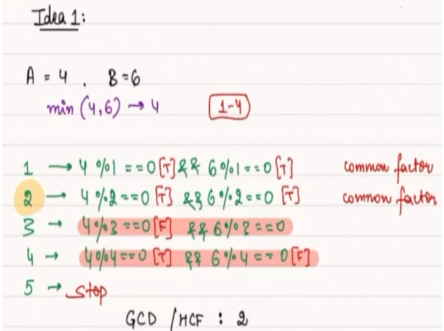 Idea 1:
A = 4 , B = 6
min (4,6) → 4 1-4
1 → 4 % 1 == 0 [T] && 6 % 1 == 0 [T] common factor
2 → 4 % 2 == 0 [T] && 6 % 2 == 0 [T] common factor
3 → 4 % 3 == 0 [F] && 6 % 3 == 0
4 → 4 % 4 == 0 [T] && 6 % 4 == 0 [F]
5 → stop
GCD / HCF : 2